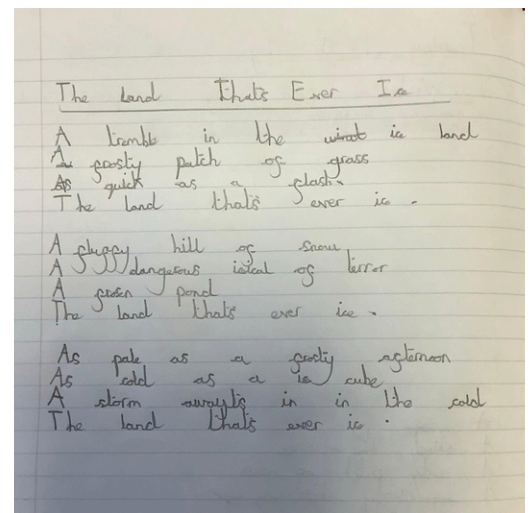 The Land that's Ever Ice
A tremble in the in land
A frosty patch of grass
As quick as a flash.
The land that's ever ic.
A fluffy hill of snow
A dangerous of terror
A frosen pond
The land that's ever ice.
As pale as a frosty afternoon
As cold as a ic cube
A storm awayts in in the cold
The land that's ever ic.